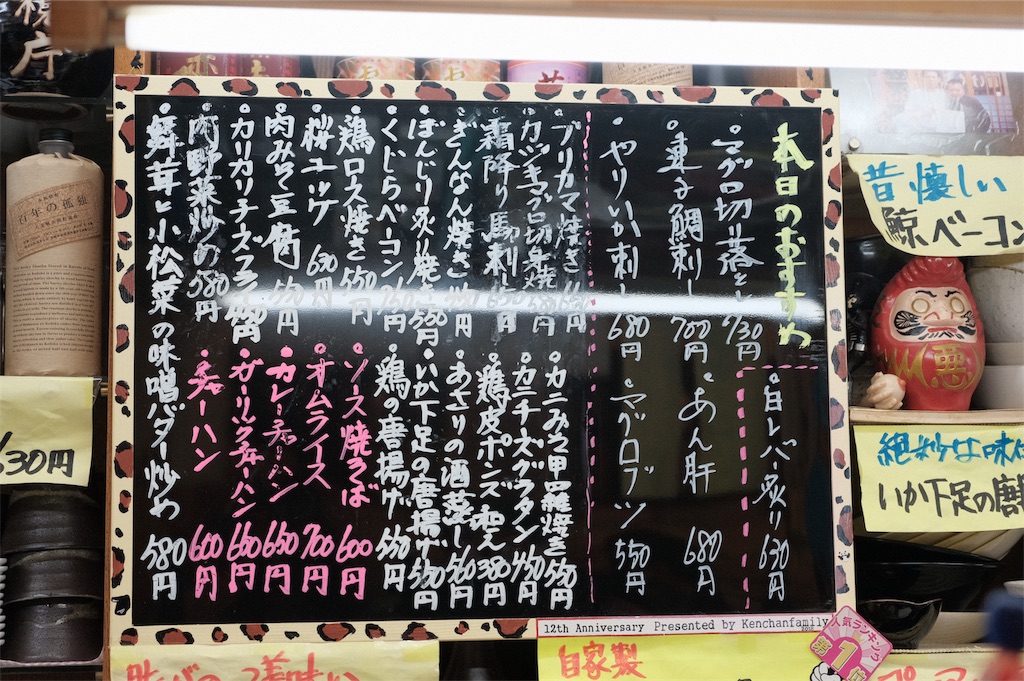 本日のおすすめ
マグロ切り落とし 730円
白レバー炙り 630円
連子鯛刺し 700円
あん肝 680円
やりいか刺し 680円
マグロブツ 550円
ブリカマ焼き
カニみそ甲羅焼き 550円
カニチーズグラタン 450円
霜降り馬刺し
鶏皮ポンズ和え 380円
ぎんなん焼き
あさりの酒蒸し 560円
ぼんじり炙り焼き
いか下足の唐揚げ 550円
くじらベーコン
鶏の唐揚げ 550円
鶏ロス焼き 550円
ソース焼そば 600円
桜ユッケ 630円
オムライス 700円
肉みそ豆腐 550円
カレーチャーハン 650円
カリカリチーズフライ
ガーリックチャーハン 650円
肉野菜炒め 580円
チャーハン 600円
舞茸と小松菜の味噌バター炒め 580円
昔懐しい
鯨ベーコン
絶妙な味
いか下足の唐
630円
百年の孤独
悪
12th Anniversary Presented by Kenchanfamily
人気ランキング
自家製
美味い